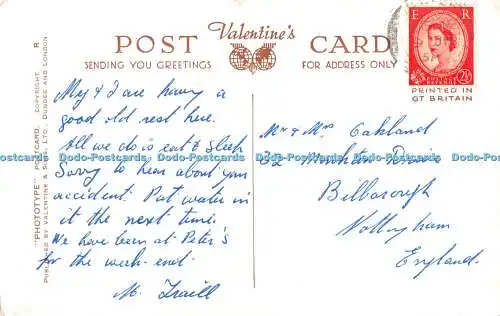 Valentine's
POST CARD
SENDING YOU GREETINGS
FOR ADDRESS ONLY
E R
POSTAGE REVENUE
2½D 2½D
PRINTED IN
GT BRITAIN
"PHOTOTYPE" POSTCARD. COPYRIGHT. R
PUBLISHED BY VALENTINE & SONS, LTD., DUNDEE AND LONDON
My & I are having a
good old rest here.
All we do is eat & sleep
Sorry to hear about your
accident. Put water in
it the next time.
We have been at Peter's
for the week-end.
M. Traill
Mr & Mrs Oakland
32 Drive
Bilborough
Nottingham
England.
Dodo-Postcards Dodo-Postcards Dodo-Postcards Dodo-Postcards Dodo-Postcards